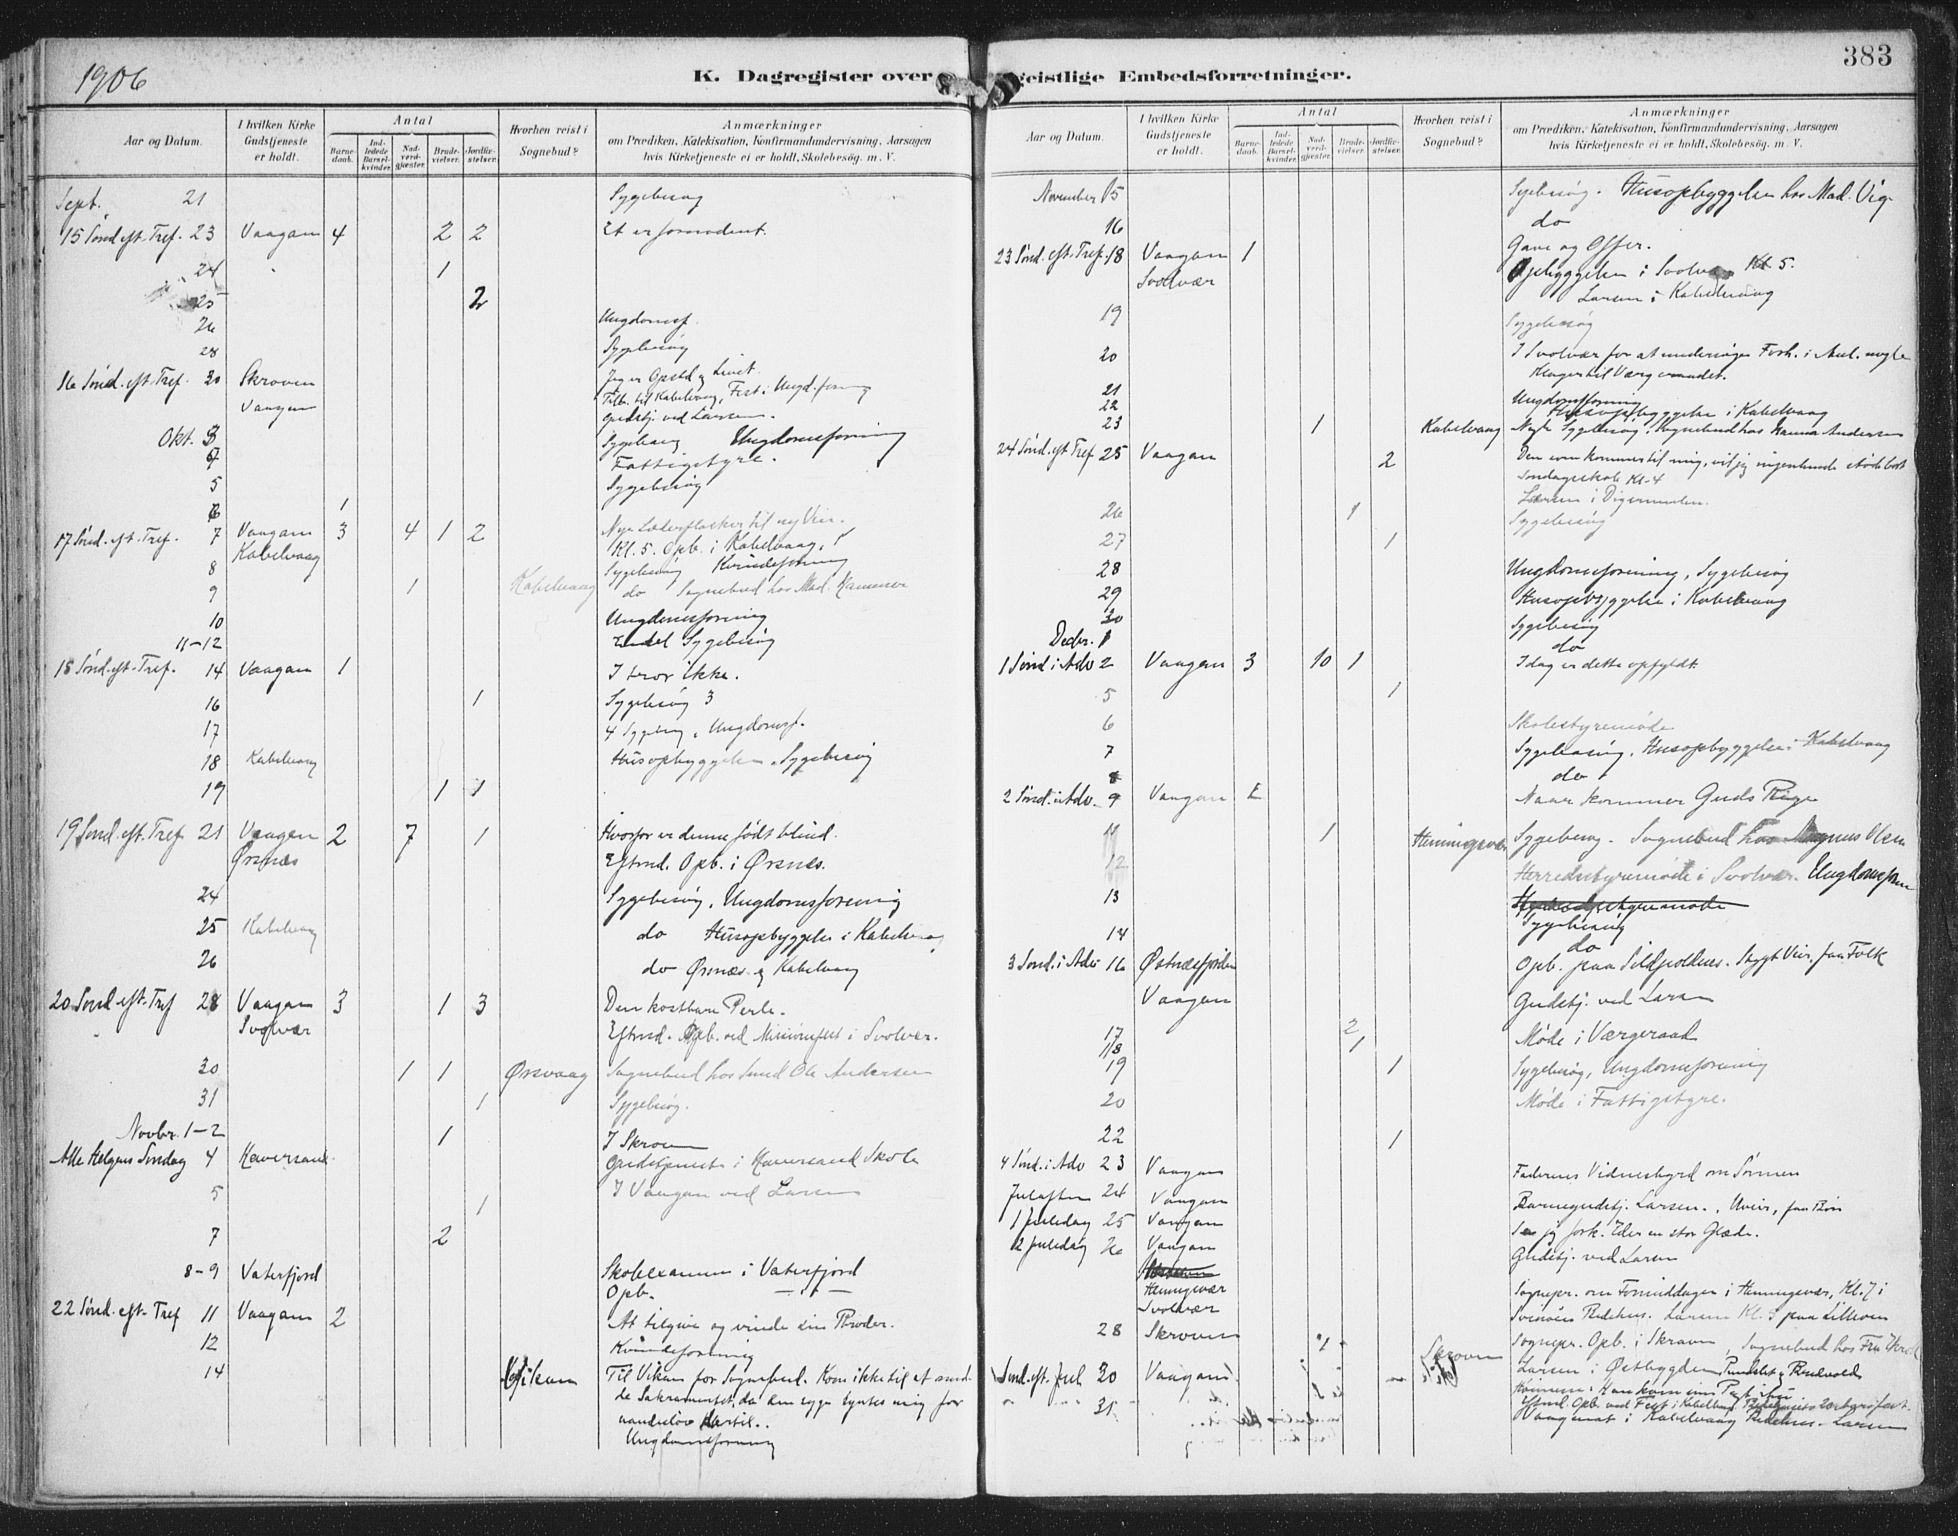 1906
K. Dagregister over geistlige Embedsforretninger.
383
Aar og Datum.
I hvilken Kirke Gudstjeneste er holdt.
Antal
Barnedaab.
Indledede Barselkvinder.
Nadverdgjæster.
Brudevielser.
Jordfæstelser.
Hvorhen reist i Sognebud?
Anmærkninger
om Prædiken, Katekisation, Konfirmandundervisning, Aarsagen
hvis Kirketjeneste ei er holdt, Skolebesøg. m. V.
Sept. 21 Sygebesøg
15 Sønd. eft. Tref. 23 Vaagan 4 2 2 Et er fornødent.
24 1
25 2
26 Ungdomsf.
28 Sygebesøg
16 Sønd. eft. Tref. 30 Skroven Jeg er Opstd. og Livet.
Vaagan Tilb. til Kabelvaag, Fest i Ungd.forening
Gudstj. ved Larsen.
Okt. 3 Sygebesøg Ungdomsforening
Fattigstyre.
5 Sygebesøg
6 1
17 Sønd. eft. Tref. 7 Vaagan 3 4 1 2 Nye Læderflasker til ny Vin.
Kabelvaag Kl. 5. Opb. i Kabelvaag.
8 Sygebesøg Kvindeforening
9 1 Kabelvaag do Sognebud hos Mad. Hammer
10 Ungdomsforening
11-12 Endel Sygebesøg
18 Sønd. eft. Tref. 14 Vaagan 1 I tror ikke.
16 1 Sygebesøg 3
17 4 Sygebesøg, Ungdomsf.
18 Kabelvaag Husopbyggelse, Sygebesøg
19 1 1
19 Sønd. eft. Tref. 21 Vaagan 2 7 1 Hvorfor er denne født blind.
Ørsnæs Eftmd. Opb. i Ørsnes.
24 Sygebesøg, Ungdomsforening
25 Kabelvaag do Husopbyggelse i Kabelvaag
26 do Ørsnæs og Kabelvaag
20 Sønd. eft. Tref 28 Vaagan 3 1 3 Den kostbare Perle.
Svolvær Eftmd. Opb. ved Missionsfest i Svolvær.
30 1 1 Ørsvaag Sognebud hos Smed Ole Andersen
31 1 Sygebesøg.
Novbr. 1-2 1 I Skroven
Alle Helgens Søndag 4 Haversand Gudstjeneste i Haversand Skole
5 1 I Vaagan ved Larsen
7 2
8-9 Vaterfjord Skolexamen i Vaterfjord
Opb.
22 Sønd. eft. Tref 11 Vaagan 2 At tilgive og vinde sin Broder.
12 Kvindeforening
14 Vikan Til Vikan for Sognebud. Kom ikke til at med-
de Sakramentet, da den syge syntes mig for
aandsløv dertil.
Ungdomsforening
Aar og Datum.
I hvilken Kirke Gudstjeneste er holdt.
Antal
Barnedaab.
Indledede Barselkvinder.
Nadverdgjæster.
Brudevielser.
Jordfæstelser.
Hvorhen reist i Sognebud?
Anmærkninger
om Prædiken, Katekisation, Konfirmandundervisning, Aarsagen
hvis Kirketjeneste ei er holdt, Skolebesøg. m. V.
November 15 Sygebesøg. Husopbyggelse hos Mad. Vig.
16 do
23 Sønd. eft. Tref. 18 Vaagan 1 Gave og Offer.
Svolvær Opbyggelse i Svolvær Kl. 5.
Larsen i Kabelvaag
19 Sygebesøg
20 I Svolvær for at undersøge Forh. i Anl. nogle
Klager til Værgeraadet.
21 Ungdomsforening
22 Husopbyggelse i Kabelvaag
23 1 Kabelvaag Sygebesøg, Sognebud hos Hanna Andersen
24 Sønd. eft Tref 25 Vaagan 2 Den som kommer til mig, vil jeg ingenlunde støde bort
Søndagsskole Kl. 4
Larsen i Digermulen.
26 1 Sygebesøg
27 1
28 Ungdomsforening, Sygebesøg
29 Husopbyggelse i Kabelvaag
30 Sygebesøg
Decbr. 1 do
1 Sønd. i Adv 2 Vaagan 3 10 1 I dag er dette opfyldt.
5 1
6 Skolestyremøde
7 Sygebesøg, Husopbyggelse i Kabelvaag
8 do
2 Sønd. i Adv. 9 Vaagan Naar kommer Guds Rige
11 1 Henningsvær Sygebesøg. Sognebud hos Magnus Olsen
12 Herredsstyremøde i Svolvær. Ungdomsforen
13 Herredsstyremøde
Sygebesøg
14 do
3 Sønd. i Adv 16 Østnesfjorden Opb. paa Sildpolnes. Stygt Veir, faa Folk
Vaagan Gudstj. ved Larsen
17 2 Møde i Værgeraad
18 1
19 1 Sygebesøg, Ungdomsforening
20 Møde i Fattigstyre.
22 1
4 Sønd. i Adv 23 Vaagan Faderens Vidnesbyrd om Sønnen
Juleaften 24 Vaagan Barnegudstj. Larsen., Uveir, faa Børn
1 Juledag 25 Vaagan Se jeg fork. Eder en stor Glæde.
2 Juledag 26 Vaagan Gudstj. ved Larsen
Henningsvær Sognepr. om Formiddagen i Henningsvær, Kl. 7 i
Svolvær Svinøens Bedehus. Larsen Kl. 5 paa
28 Skroven Skroven Sognepr. Opb. i Skroven, Sognebud hos Fru
Larsen i Østbygden
Sønd. eft. Jul 30 Vaagan
31 Vaagan i Kabelvaag Bedehus. Larsen